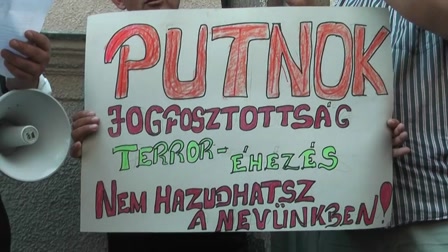 PUTNOK
JOGFOSZTOTTSÁG
TERROR-ÉHEZÉS
NEM HAZUDHATSZ
A NEVÜNKBEN!